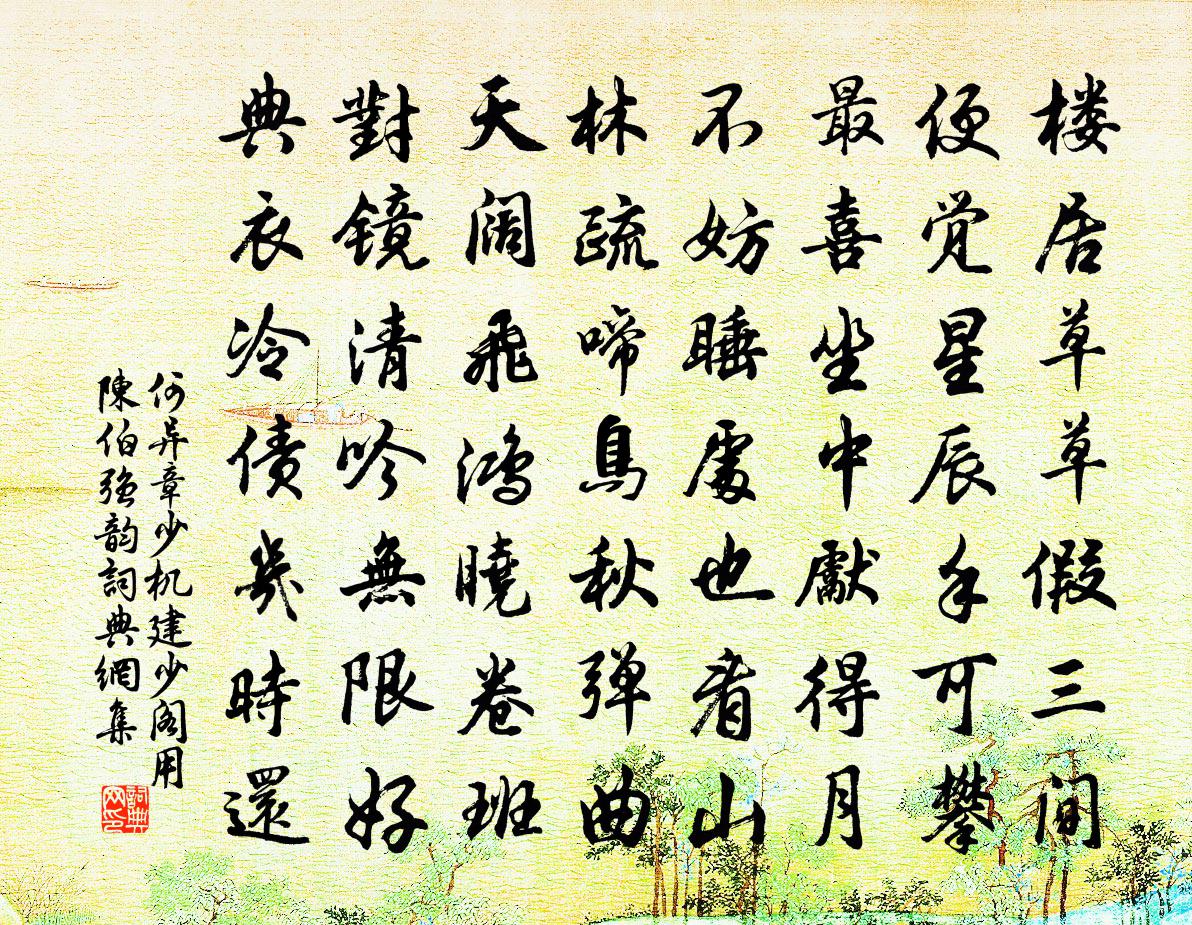 楼居草草假三间
便觉星辰手可攀
最喜坐中獻得月
不妨睡處也看山
林疏啼鳥秋弹曲
天阔飛鸿曉卷班
對镜清吟無限好
典衣冷债幾時還
何异章少机建少阁用
陳伯强韵詞典網集
詞典网印